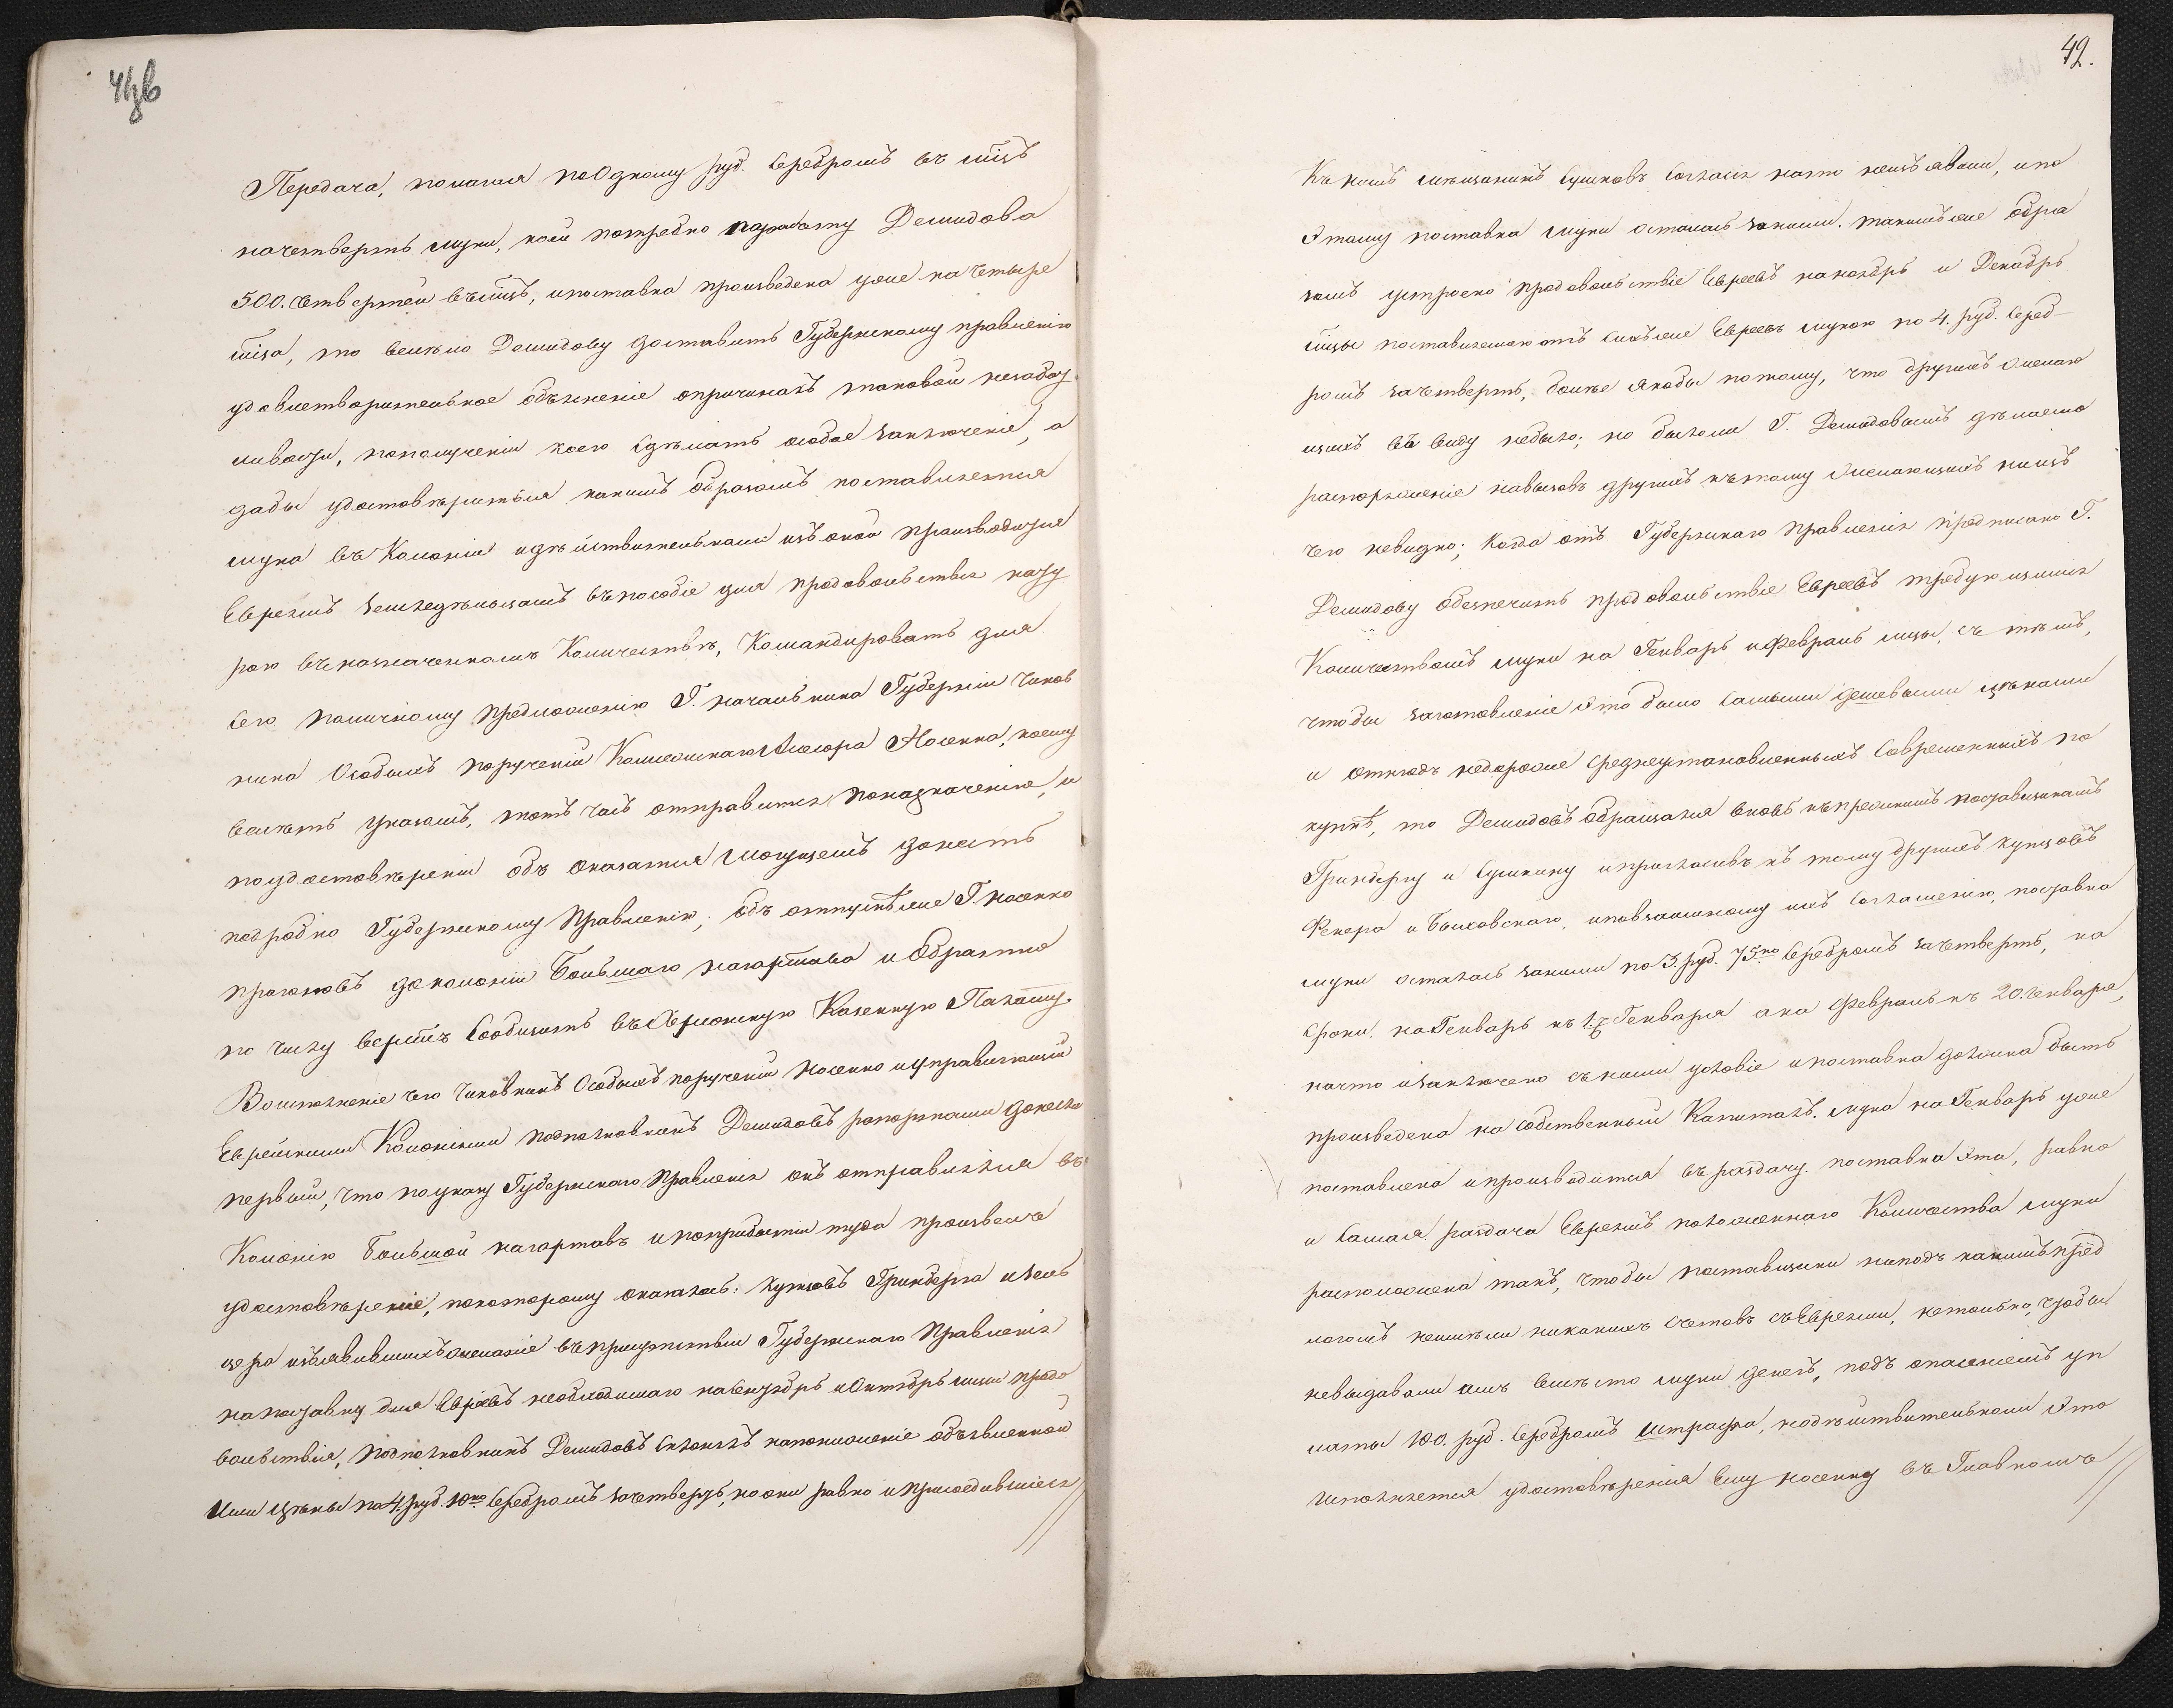 41зв
Передача, полагая по Одному руб. Серебромъ въ мѣсѣ
на четверть муки, коей потребно по разчету Демидова
500. четвертей въ мѣсѣ, и поставка произведена уже на четыре
мѣса, то велѣно Демидову доставить Губернскому правленію
удовлетворительное объясненіе о причинахъ таковой незабот
ливости, по полученіи коего сдѣлать особое заключеніе, а
дабы удостовѣриться какимъ образомъ поставляется
мука въ Колоніи и дѣйствительноли изъ оной производится
Евреямъ Земледѣльцамъ въ пособіе для продовольствія
въ назначенномъ Количествѣ, Командировать для
сего по личному предложенію Г. Начальника Губерніи Чинов
ника Особыхъ порученій Коллежскаго Ассесора Носенко, коему
велѣть указомъ, тотъ часъ отправится по назначенію, и
по удостовѣреніи объ оказатся могущемъ донесть
подробно Губернскому Правленію; объ отпускѣ же Г. Носенко
прогоновъ до колоніи Большаго Нагартава и Обратно
по числу верстъ Сообщить въ Херсонскую Казенную Палату.
Во исполненіе чего Чиновникъ Особыхъ порученій Носенко и Управляющій
Еврейскими Колоніями подполковникъ Демидовъ рапортами донесли
первый, что по указу Губернскаго Правленія онъ отправился въ
Колонію Большой нагартавъ и по прибытіи туда произвелъ
удостовѣреніе, по которому оказалось: купцовъ Гринберга и Зель
цера изъявившихъ желаніе въ присутствіи Губернскаго Правленія
на поставку для Евреевъ необходимаго на Сентябрь и Октябрь мѣсы продо
вольствія, Подполковникъ Демидовъ Склонялъ на пониженіе объявленной
Ими цѣны по 4. руб. 10 ко Серебромъ за четверть, но они равно и присоединившійся
42.
Къ нимъ мѣщанинъ Сушковъ Согласія на то неизъявили, и по
этому поставка муки осталась за ними. такимъ же обра
зомъ устроено продовольствіе Евреевъ на ноябрь и Декабрь
мѣсы поставляемою отъ сихъ же Евреевъ мукою по 4. руб. Сереб
ромъ за четверть, болѣе якобы потому, что другихъ желаю
щихъ въ виду небыло; но былоли Г. Демидовымъ дѣлаемо
распоряженіе на вызовъ другихъ къ тому желающихъ изъ
чего невидно; Когда отъ Губернскаго Правленія предписано Г.
Демидову обезпечить продовольствіе Евреевъ требующимся
Количествомъ муки на Генварь и Февраль мѣсы, съ тѣмъ,
чтобы заготовленіе это было самыми дешевыми цѣнами
и отнюдъ недороже среднеустановленныхъ Современныхъ по
купкѣ, то Демидовъ обращался вновь къ прежнимъ поставщикамъ
Гринбергу и Сушкину и пригласивъ къ тому другихъ купцовъ
Фенера и Быховскаго, и по взаимному ихъ Соглашенію, поставка
муки осталась за ними по 3. руб. 75 ко Серебромъ за четверть, на
Сроки, на Генварь къ Генваря а на Февраль къ 20. Генваря,
на что и заключено съ ними условіе и поставка должна быть
произведена на собственный Капиталъ. Мука на Генварь уже
поставлена и производится въ раздачу. поставка эта, равно
и Самая раздача Евреямъ положеннаго Количества муки
расположена такъ, чтобы поставщики ниподъ какимъ пред
логомъ неимѣли никакихъ Счетовъ съ Евреями, не только, чтобы
невыдавали имъ вмѣсто муки денегъ, подъ опасеніемъ уп
латы 100. руб. Серебромъ Штрафа, но дѣйствительноли это
исполняется удостовѣренія Ему Носенку въ Главномъ